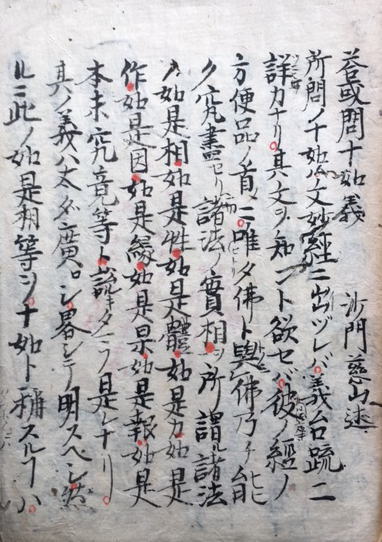 荅或問十如義 沙門慈山述
所問ノ十如ハ文妙經ニ出ツレバ義台䟽ニ
詳カナリ其文ヲ知ント欲セバ彼ノ經ノ
方便品ノ首ニ唯タ佛ト與佛乃チ能
ク究盡セリ諸法ノ實相ヲ所謂ル諸法
ノ如是相如是性如是體如是力如是
作如是因如是縁如是果如是報如是
本末究竟等ト説キタマフ是レナリ
其ノ義ハ太タ廣ロシ畧シテ明スベシ然
ルニ此ノ如是相等ヲ十如ト稱スルヿハ